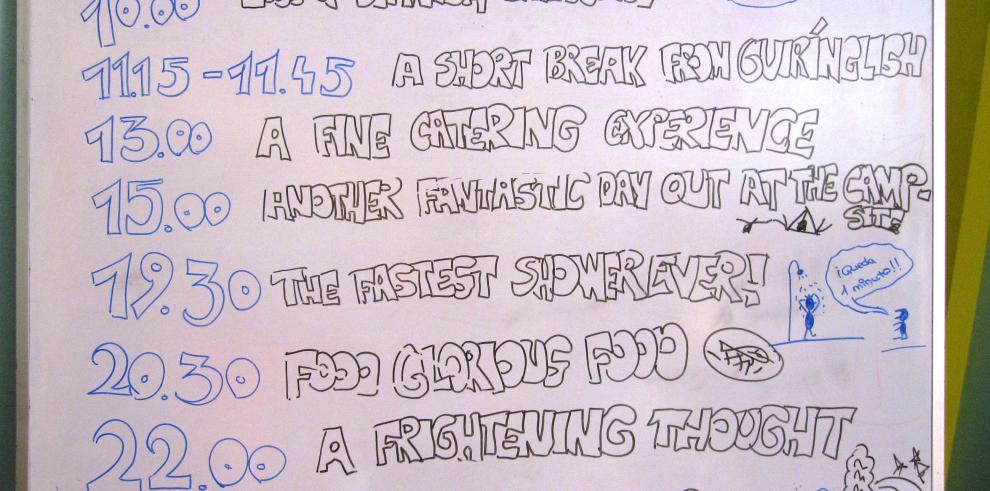 10.00
11.15 - 11.45 A SHORT BREAK FROM GUIRÍNGLISH
13.00 A FINE CATERING EXPERIENCE
15.00 ANOTHER FANTASTIC DAY OUT AT THE CAMP-
SITE
19.30 THE FASTEST SHOWER EVER!
¡Queda
1 minuto!!
20.30 FOOD GLORIOUS FOOD
22.00 A FRIGHTENING THOUGHT